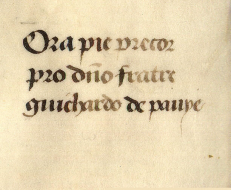 Ora pie precor
pro dño fratre
guichardo de paupe